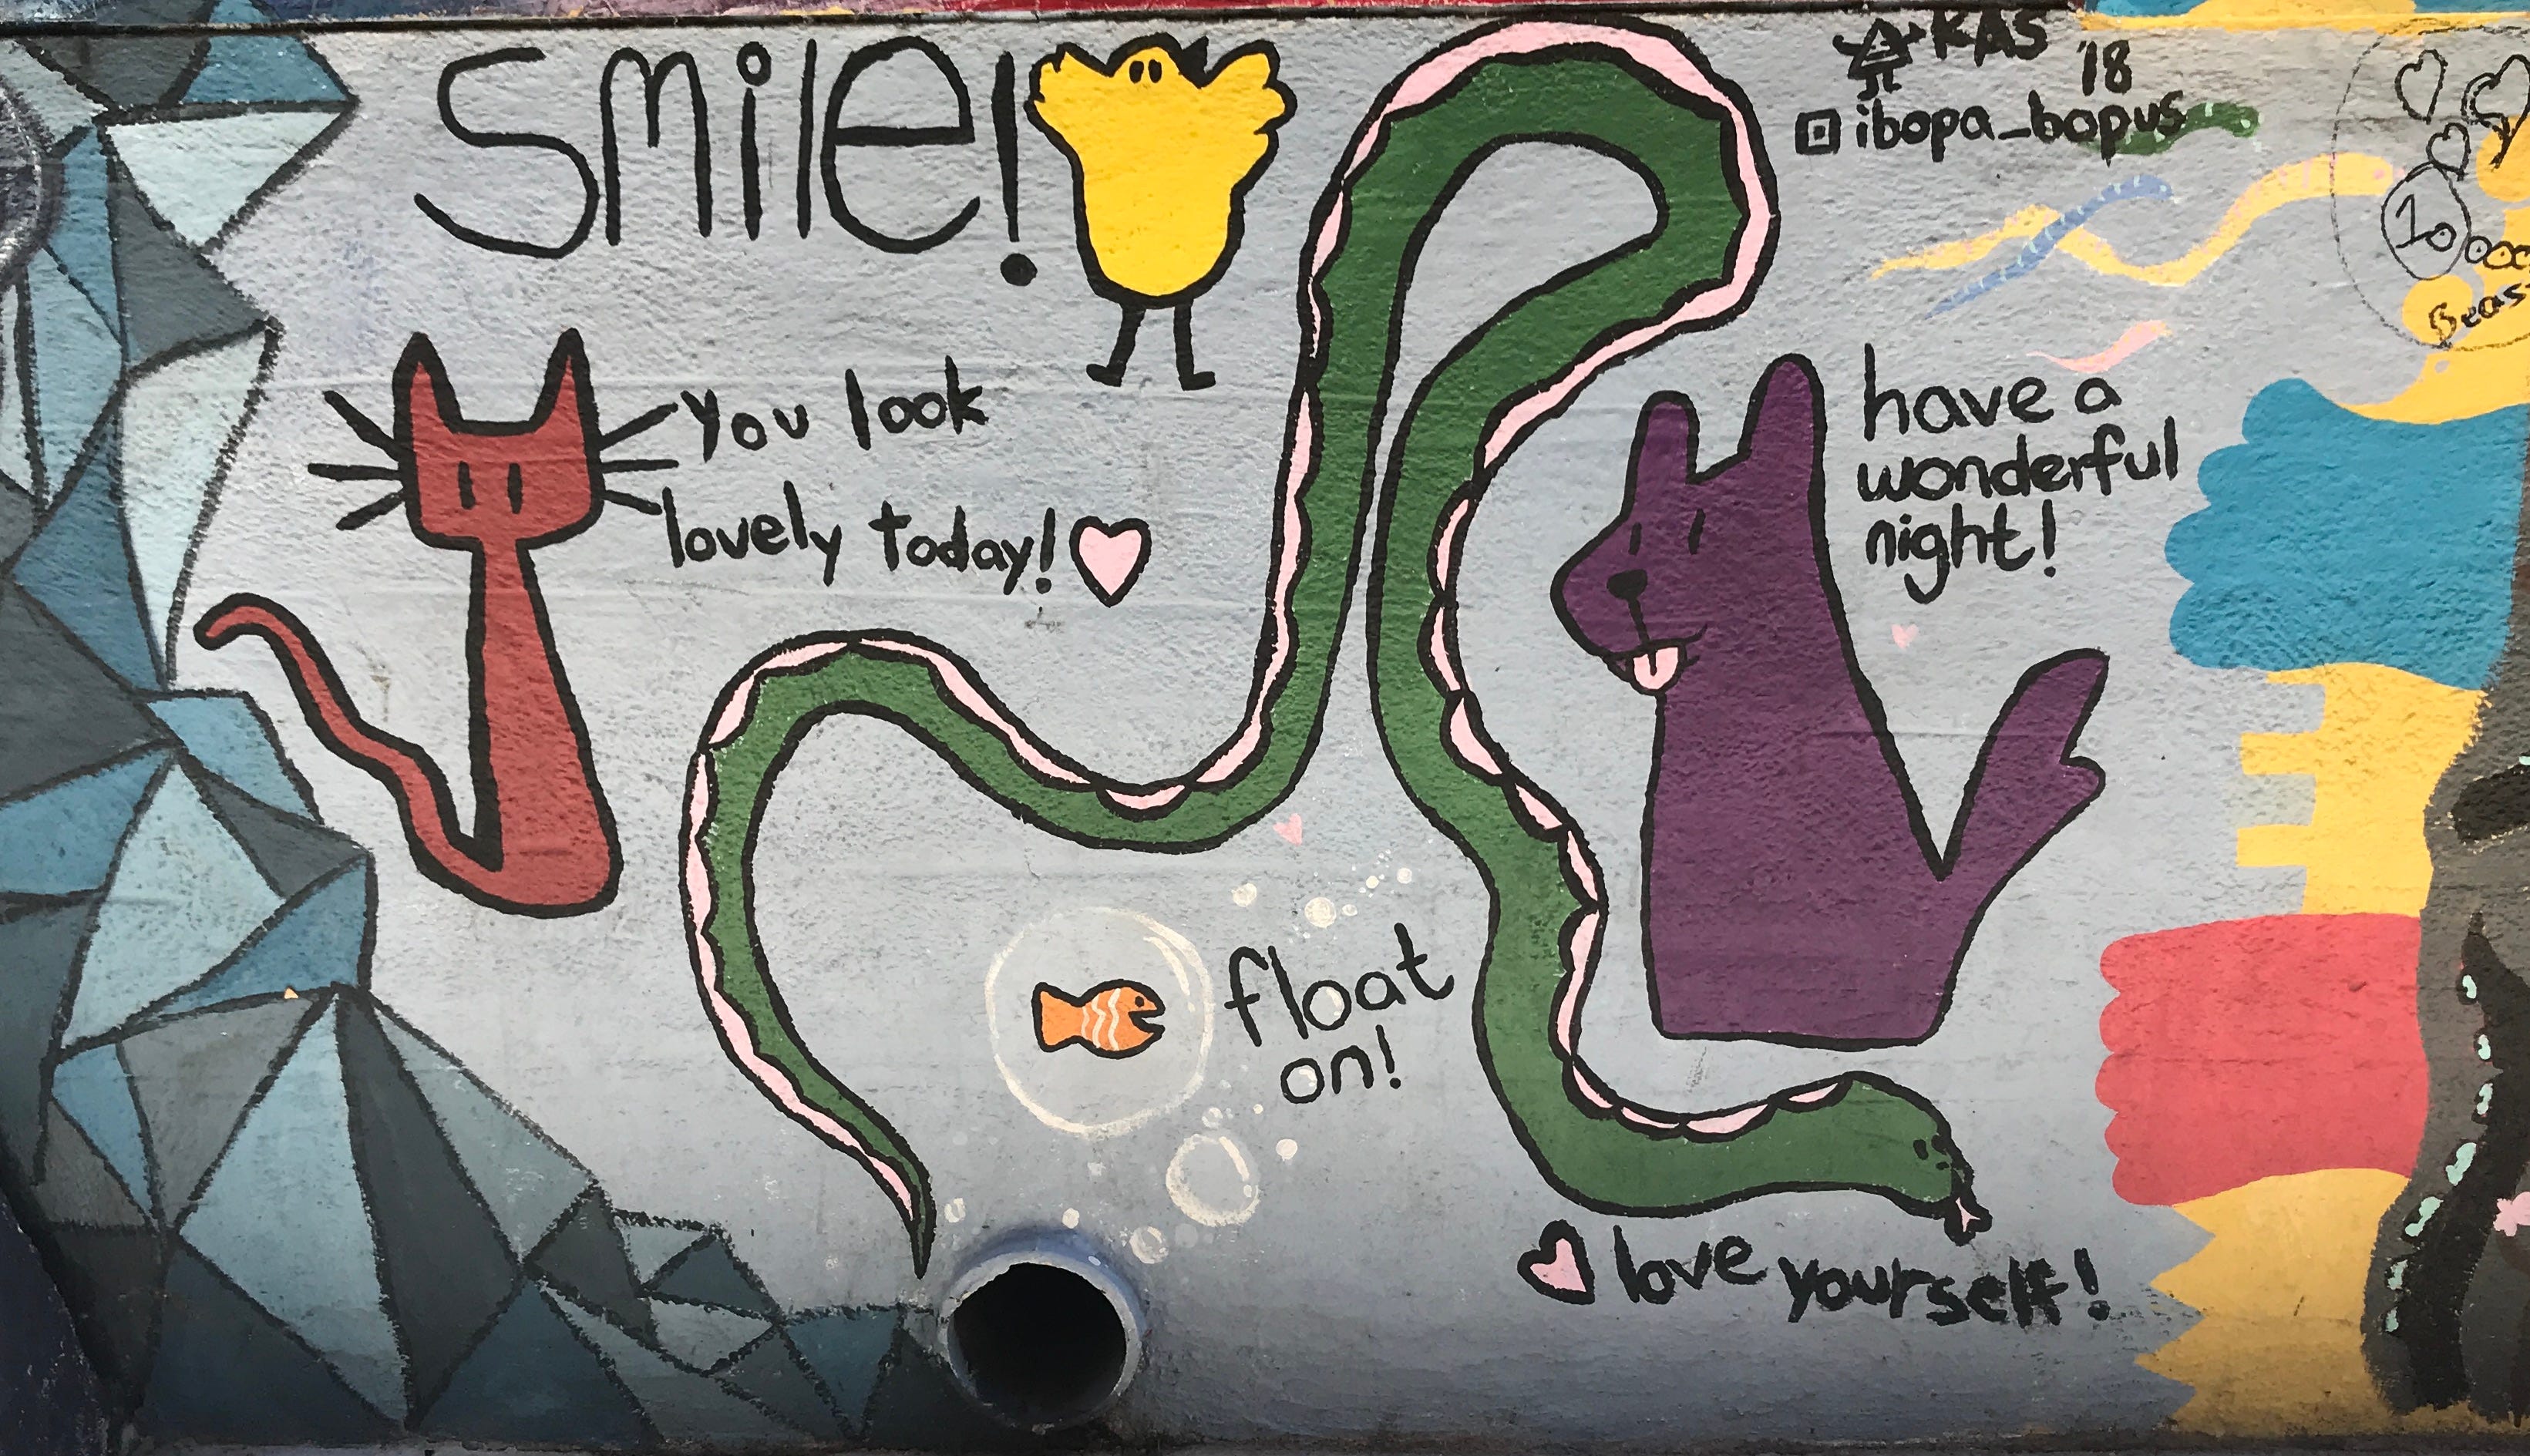 smile!
KAS
'18
ibopa_bopus
You look
lovely today!
have a
wonderful
night!
float
on!
love yourself!
10